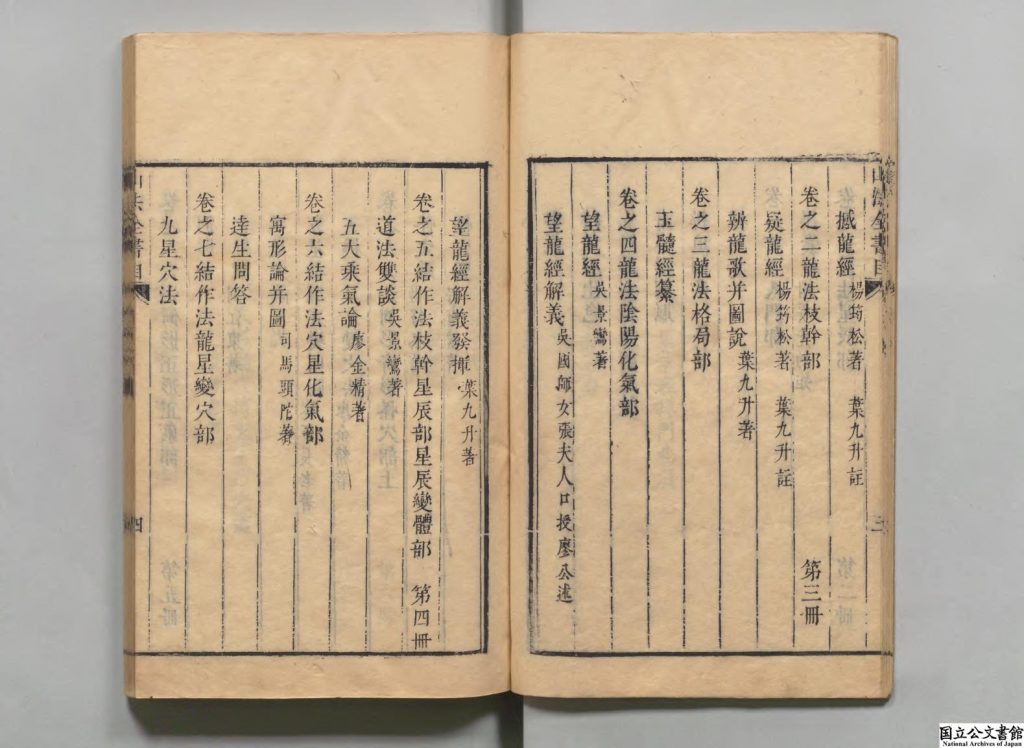 撼龍經 楊筠松著 葉九升註
卷之二龍法枝幹部 第三冊
疑龍經 楊筠松著 葉九升註
辨龍歌并圖說 葉九升著
卷之三龍法格局部
玉髓經纂
卷之四龍法陰陽化氣部
望龍經 吳景鸞著
望龍經解義 吳國師女張夫人口授廖公述
望龍經解義發揮 葉九升著
卷之五結作法枝幹星辰部星辰變體部 第四冊
道法雙談 吳景鸞著
五大乘氣論 廖金精著
卷之六結作法穴星化氣部
寓形論并圖 司馬頭陀著
達生問答
卷之七結作法龍星變穴部
九星穴法
山法全書目
三
四
国立公文書館
National Archives of Japan